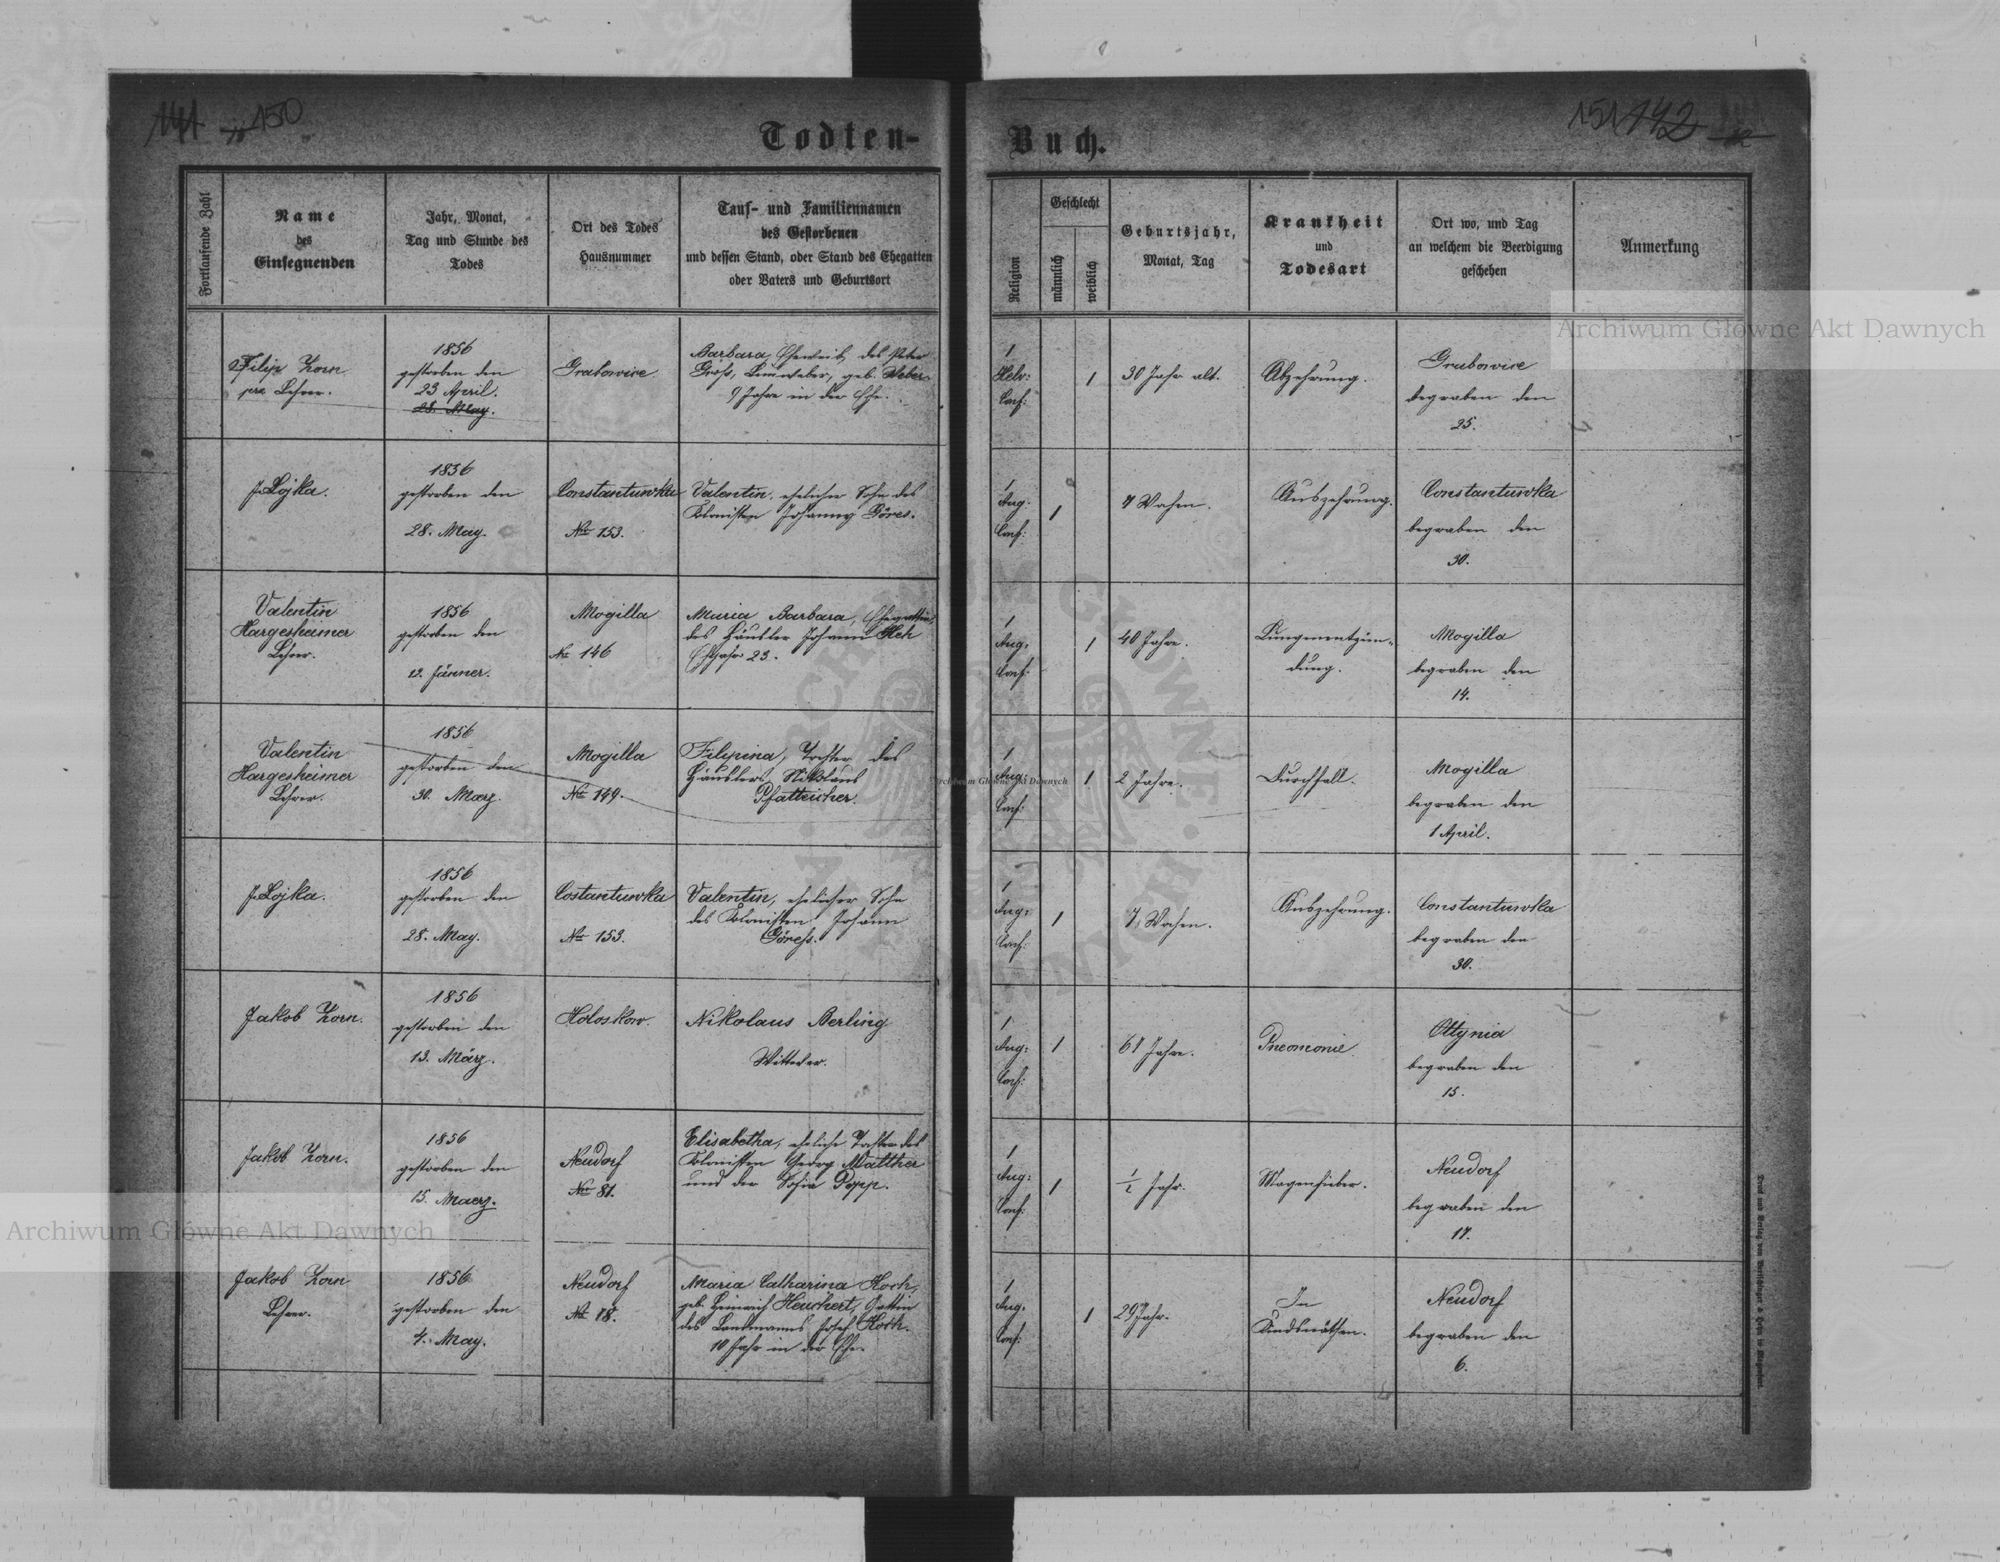 141 150
Todten-
Buch.
151 142
Fortlaufende Zahl
Name
des
Einsegnenden
Jahr, Monat,
Tag und Stunde des
Todes
Ort des Todes
Hausnummer
Tauf- und Familiennamen
des Gestorbenen
und dessen Stand, oder Stand des Ehegatten
oder Vaters und Geburtsort
Religion
Geschlecht
männlich
weiblich
Geburtsjahr,
Monat, Tag
Krankheit
und
Todesart
Ort wo, und Tag
an welchem die Beerdigung
geschehen
Anmerkung
Filip Zorn
Lehrer.
1856
gestorben den
23 April.
28. May.
Grabowice
Barbara, Eheweib des Peter
Gross, Leinweber, geb. Weber
9 Jahre in der Ehe.
1
Helv:
Conf:
1
30 Jahr alt.
Abzehrung.
Grabowice
begraben den
25.
J. Lojka.
1856
gestorben den
28. May.
Constantuwka
No 153.
Valentin, ehelicher Sohn des
Kolonisten Johann Göres.
1
Aug:
Conf:
1
7 Wochen.
Auszehrung.
Constantuwka
begraben den
30.
Valentin
Hargesheimer
Lehrer.
1856
gestorben den
12. Jänner.
Mogilla
No 146
Maria Barbara, Ehegattin
des Häusler Johann
Ehejahr 23.
1
Aug:
Conf:
1
40 Jahre.
Lungenentzün-
dung.
Mogilla
begraben den
14.
Valentin
Hargesheimer
Lehrer.
1856
gestorben den
30. Marz.
Mogilla
No 149.
Filipina, Tochter des
Häuslers Nikolaus
Pfatteicher.
1
Aug:
Conf:
1
2 Jahre.
Durchfall.
Mogilla
begraben den
1 April.
J. Lojka.
1856
gestorben den
28. May.
Costantuwka
No 153.
Valentin, ehelicher Sohn
des Kolonisten Johann
Göress.
1
Aug:
Conf:
1
7 Wochen.
Auszehrung.
Constantuwka
begraben den
30.
Jakob Zorn.
1856
gestorben den
13. März.
Holoskow.
Nikolaus Berling
Wittwer.
1
Aug:
Conf:
1
67 Jahre.
Pneomonie.
Ottynia
begraben den
15.
Jakob Zorn.
1856
gestorben den
15. Maerz.
Neudorf
No 81.
Elisabetha, eheliche Tochter des
Kolonisten Georg Walther
und der Sofia Popp.
1
Aug:
Conf:
1
1/2 Jahr.
Magenfieber.
Neudorf
begraben den
17.
Jakob Zorn
Lehrer.
1856
gestorben den
4. May.
Neudorf
No 18.
Maria Catharina Koch,
geb. Heinrich Heuchert, Gattin
des Landmanns Josef Koch.
10 Jahr in der Ehe.
1
Aug:
Conf:
1
29 Jahr.
In
Kindsnöthen.
Neudorf
begraben den
6.
Archiwum Główne Akt Dawnych
Archiwum Główne Akt Dawnych
Archiwum Główne Akt Dawnych
ARCHIWUM GŁÓWNE AKT DAWNYCH